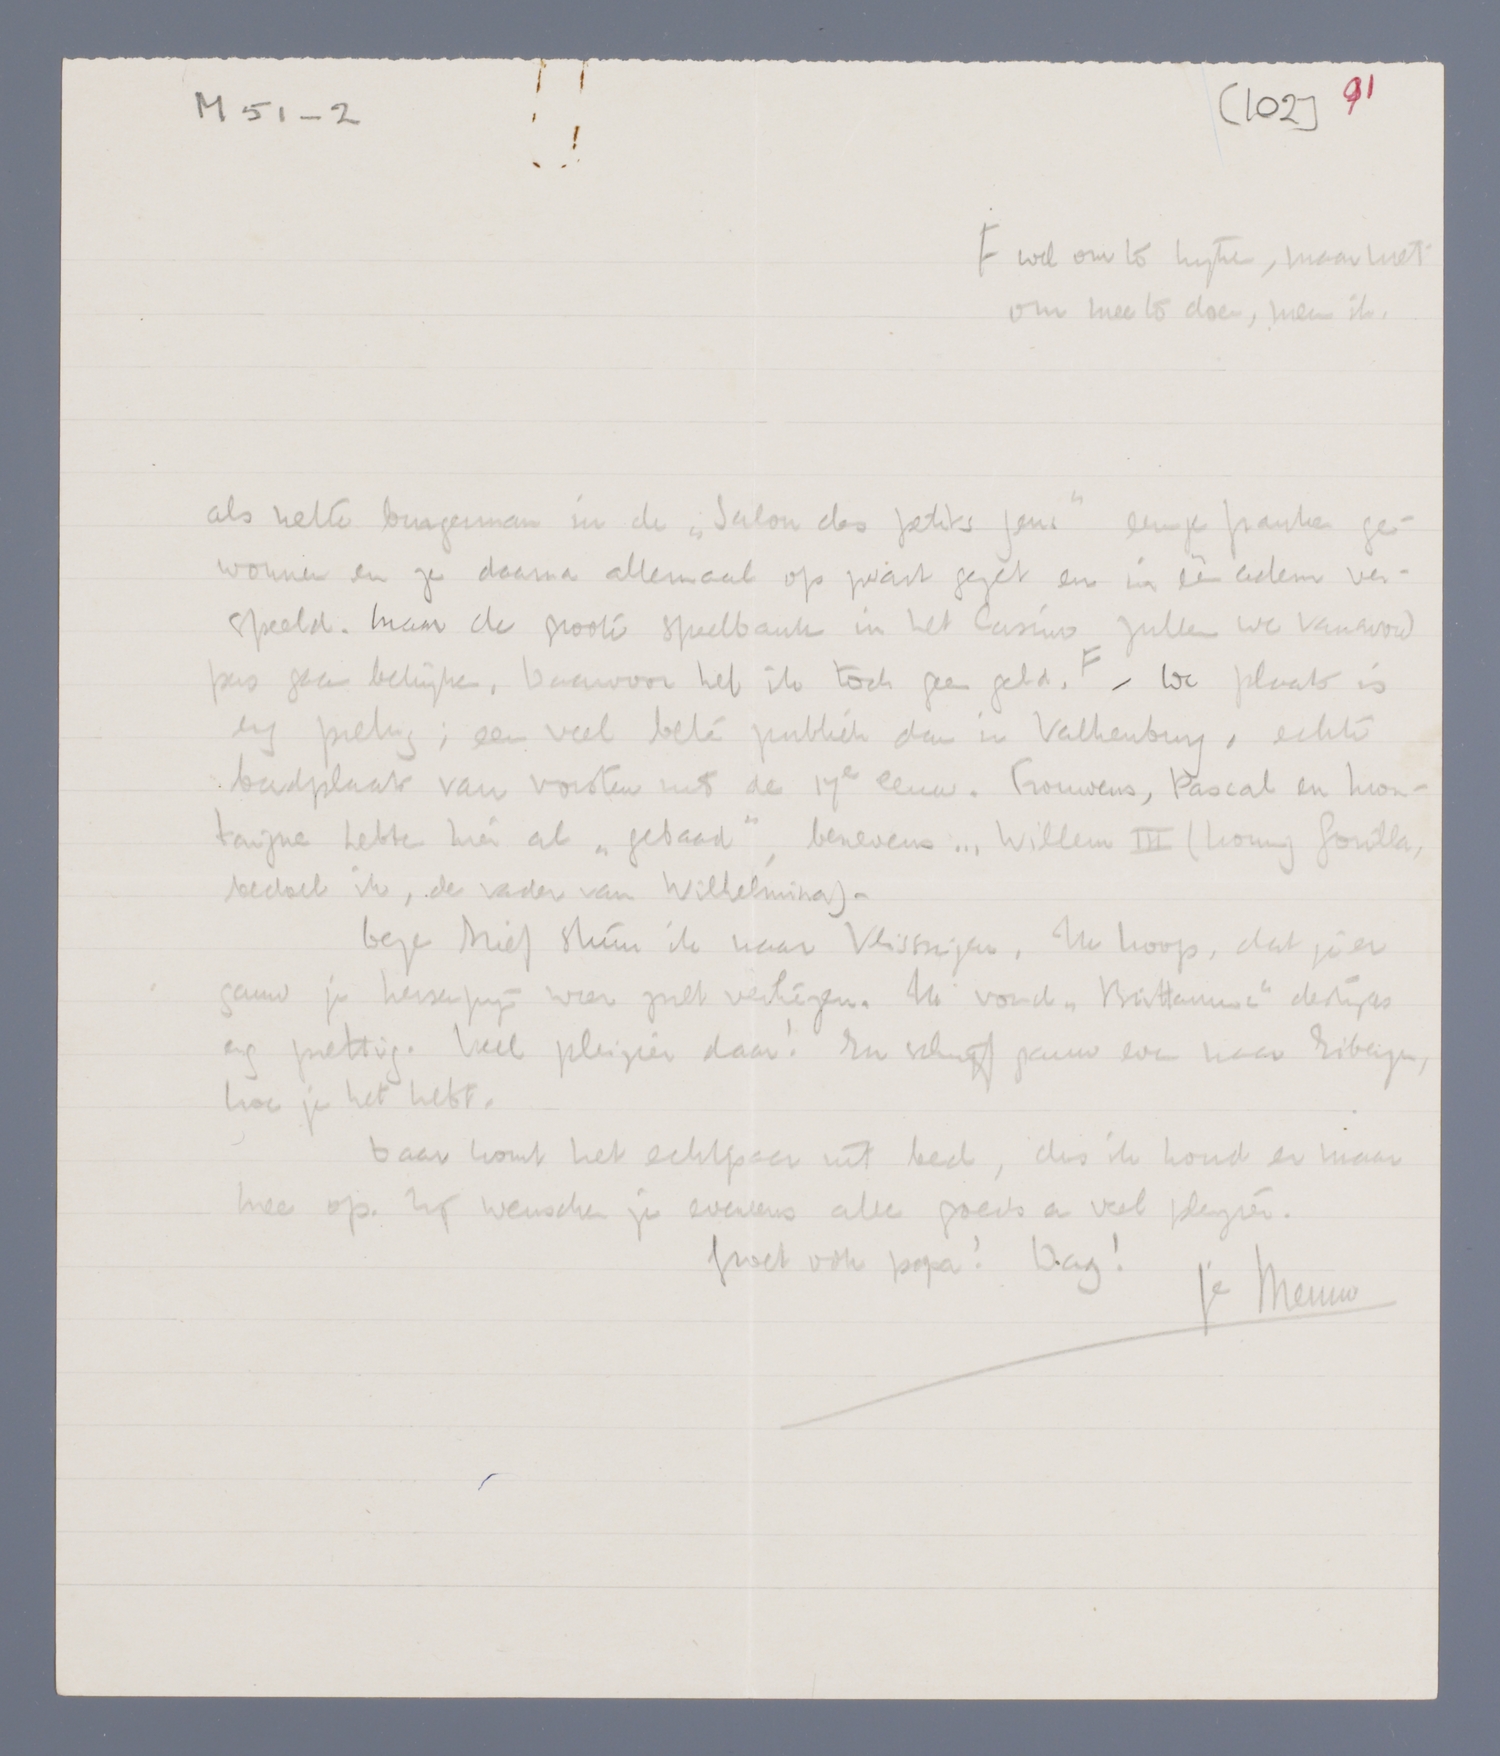 M 51-2
[102] 91
F wel om te kijken, maar niet
om mee te doen, meen ik.
als nette burgerman in de „Salon des petits jeux" eenige franken ge-
wonnen en ze daarna allemaal op zwart gezet en in één adem ver-
speeld. Maar de groote speelbank in het Casino zullen we vanavond
pas gaan bekijken. Daarvoor heb ik toch geen geld. F – De plaats is
erg prettig; een veel beter publiek dan in Valkenburg, echte
badplaats van vorsten uit de 17e eeuw. Trouwens, Pascal en Mon-
taigne hebben hier al „gebaad", benevens ... Willem III (koning Gorilla,
bedoel ik, de vader van Wilhelmina).–
Deze brief stuur ik naar Vlissingen. Ik hoop, dat je er
gauw je hersens weer zult verkrijgen. Ik vond „Brittannia" destijds
erg prettig. Veel pleizier daar! En schrijf gauw even naar Eibergen,
hoe je het hebt.
Daar komt het echtpaar uit bed, dus ik houd er maar
mee op. Zij wenschen je eveneens alle goeds en veel pleizier.
Groet ook papa! Dag!
je Menno